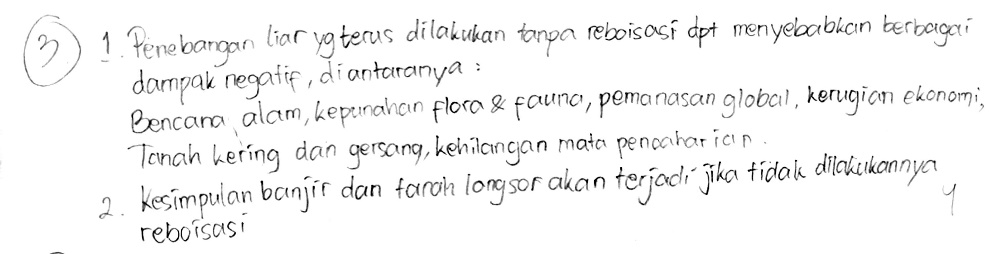 3 1. Penebangan liar yg terus dilakukan tanpa reboisasi dpt menyebabkan berbagai
dampak negatif, diantaranya :
Bencana alam, kepunahan flora & fauna, pemanasan global, kerugian ekonomi,
Tanah kering dan gersang, kehilangan mata pencaharian.
2. Kesimpulan banjir dan tanah longsor akan terjadi jika tidak dilakukannya
reboisasi